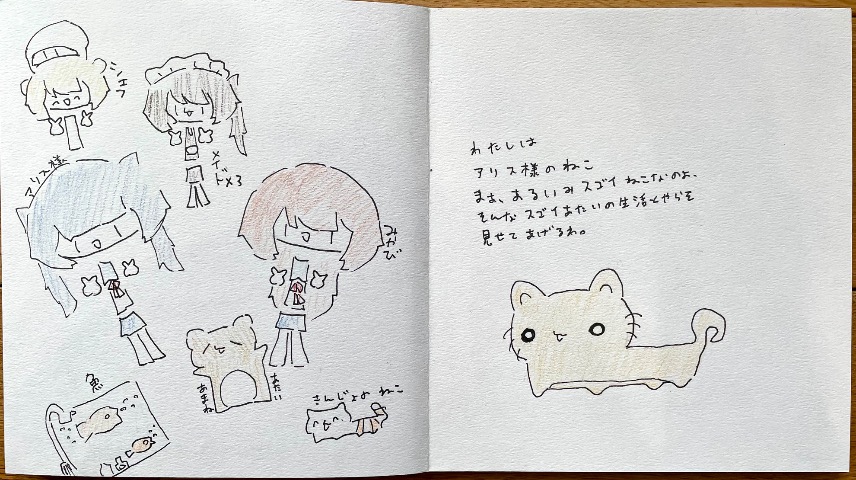 シェフ
メイド×3
アリス様
みやび
魚
あまね
あたい
きんじょの ねこ
わたしは
アリス様のねこ
まぁ、あるいみスゴイ ねこなのよ、
そんな スゴイあたいの生活とやらを
見せてあげるわ。